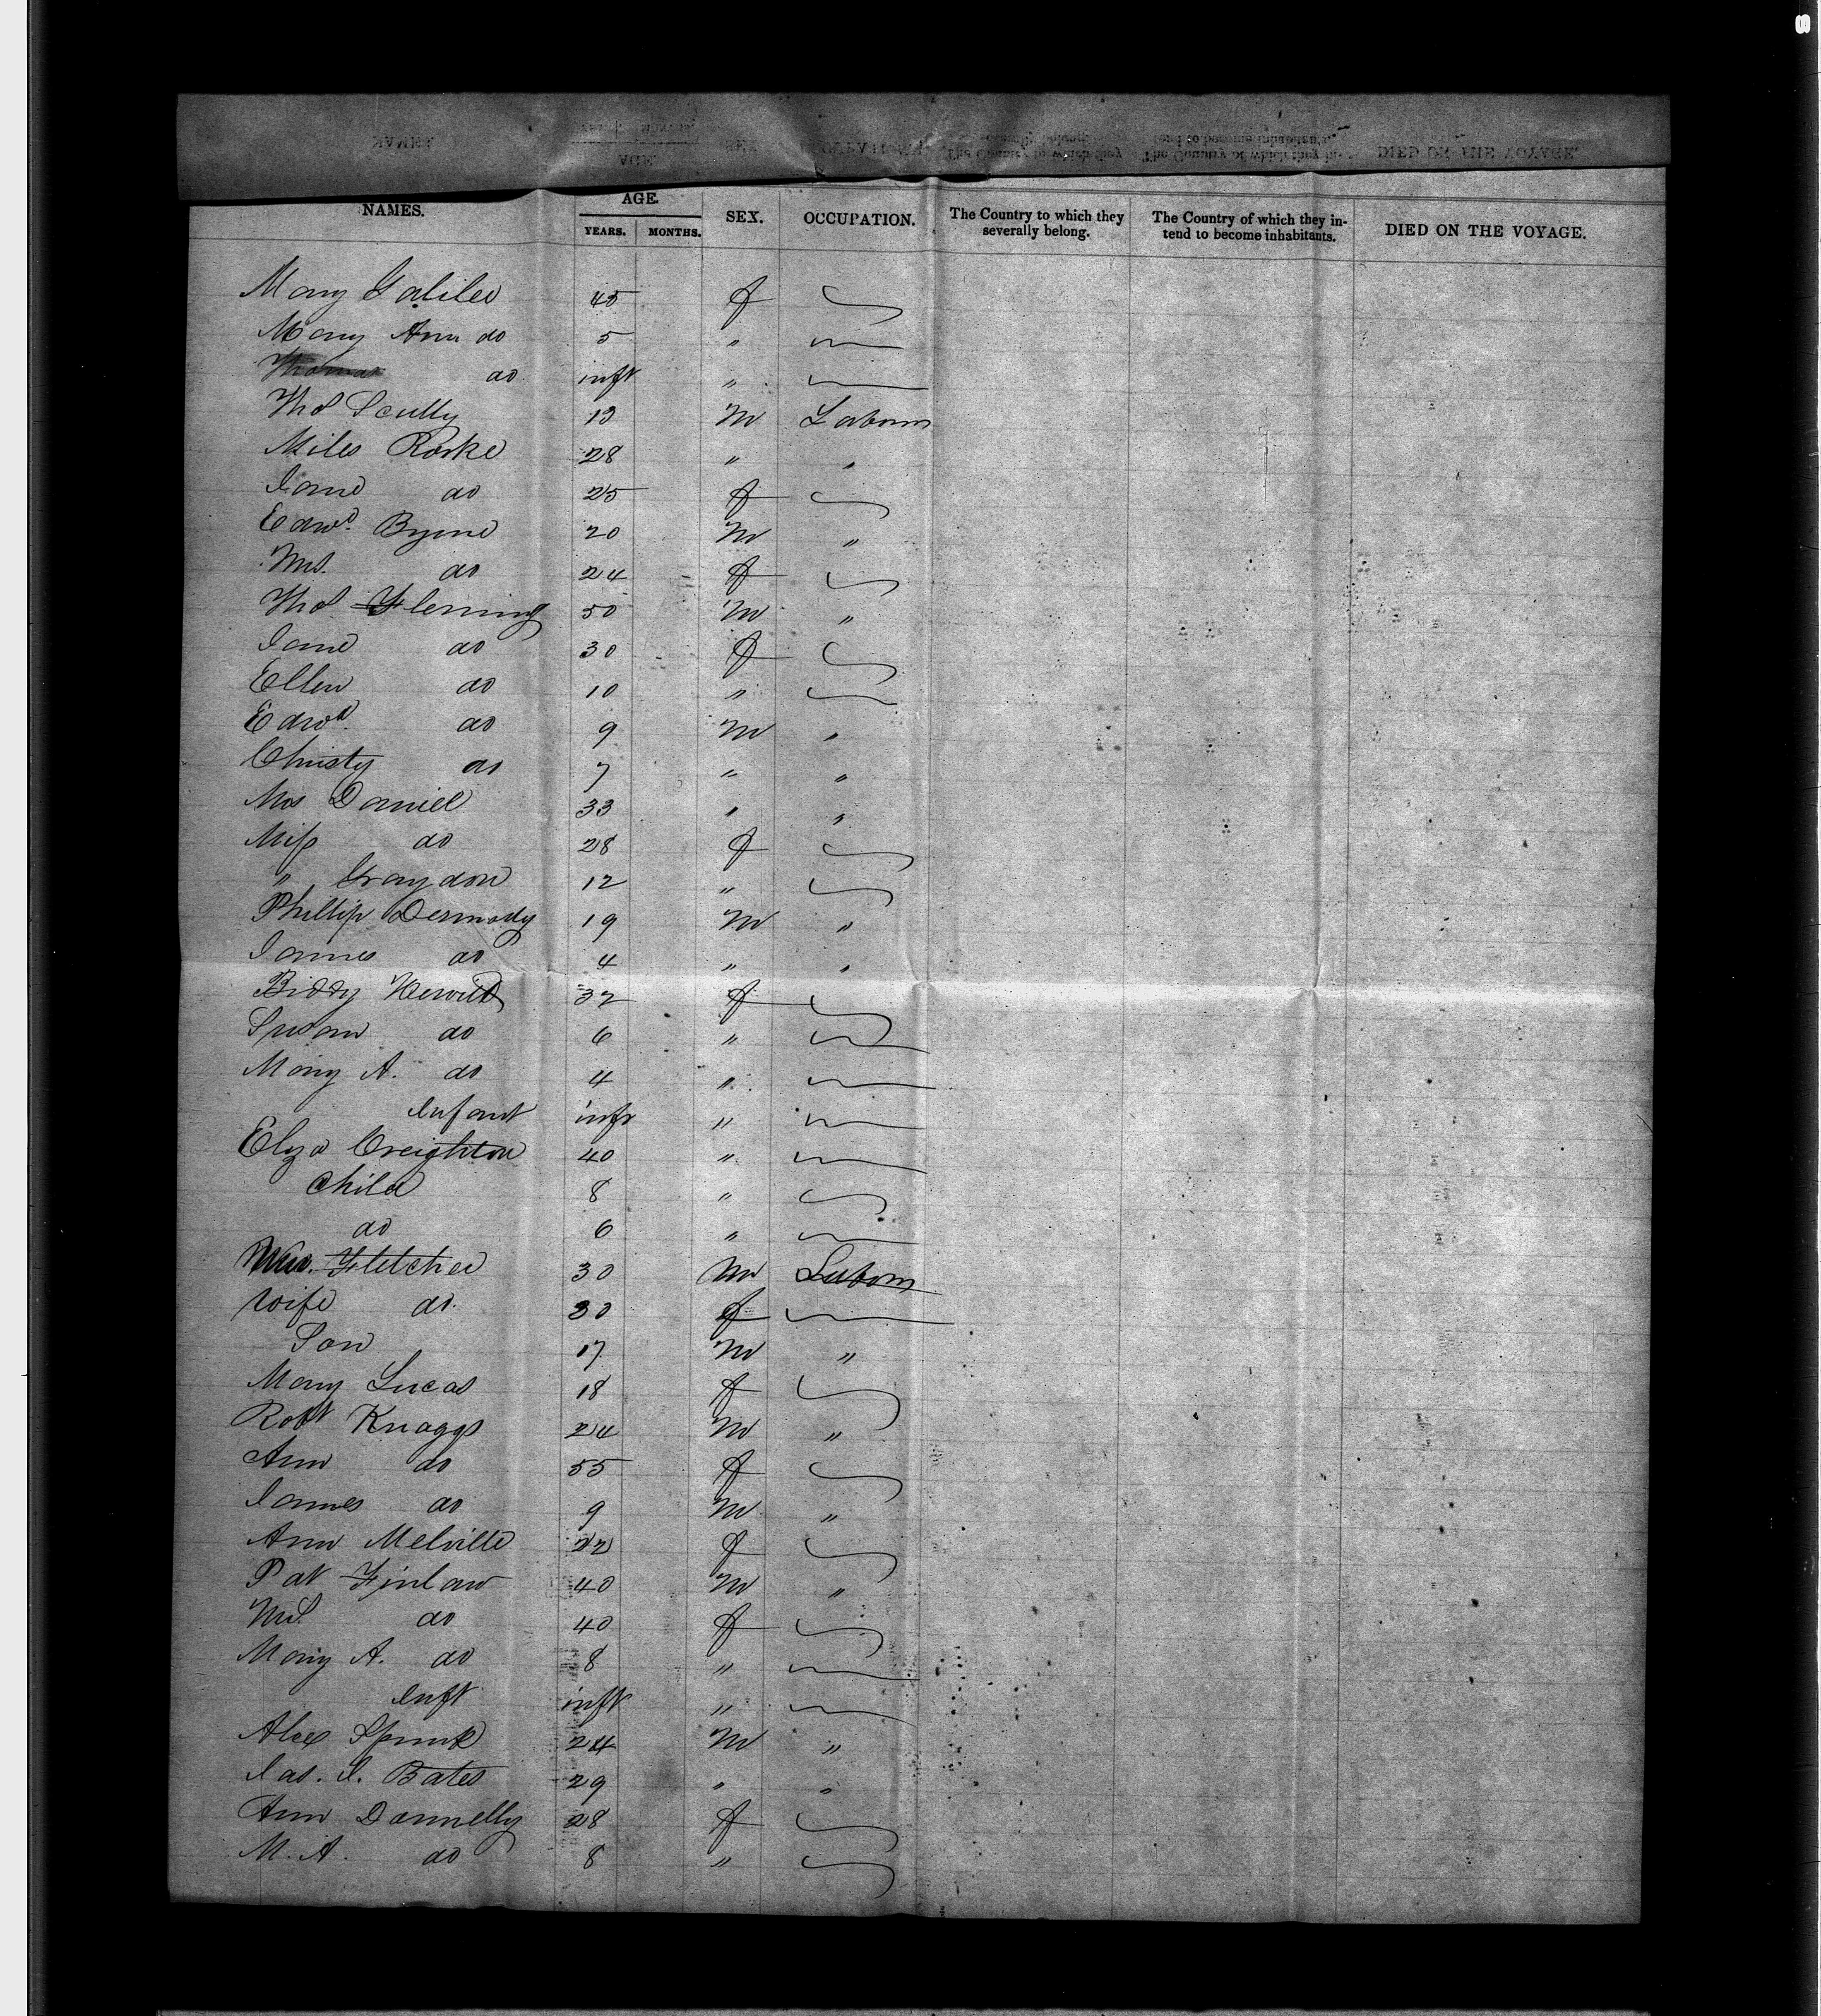 NAMES. AGE. YEARS. MONTHS. SEX. OCCUPATION. The Country to which they severally belong. The Country of which they in-tend to become inhabitants. DIED ON THE VOYAGE.
Mary Galilee 45 f
Mary Ann do 5 "
Thomas do inft "
Thos Scully 13 M Laborer
Miles Rorke 28 " "
Jane do 25 f
Edwd. Byrne 20 M "
Mrs. do 24 f
Thos Fleming 50 M "
Jane do 30 f
Ellen do 10 "
Edwd. do 9 M "
Christy do 7 " "
Mos Daniel 33 " "
Miss do 28 f
" Graydon 12 "
Phillip Dermody 19 M "
James do 4 " "
Biddy Hewitt 32 f
Susan do 6 "
Mary A. do 4 "
Infant inft "
Eliza Creighton 40 "
Child 8 "
do 6 "
Wm. Fletcher 30 M Laborer
Wife do. 30 f
Son 17 M "
Mary Lucas 18 f
Robt Knaggs 24 M "
Ann do 55 f
James do 9 M "
Ann Melville 22 f
Pat Finlaw 40 M "
Mrs. do 40 f
Mary A. do 8 "
Inft inft "
Alex Spunk 24 M "
Jas. J. Bates 29 " "
Ann Donnelly 28 f
M. A. do 8 "